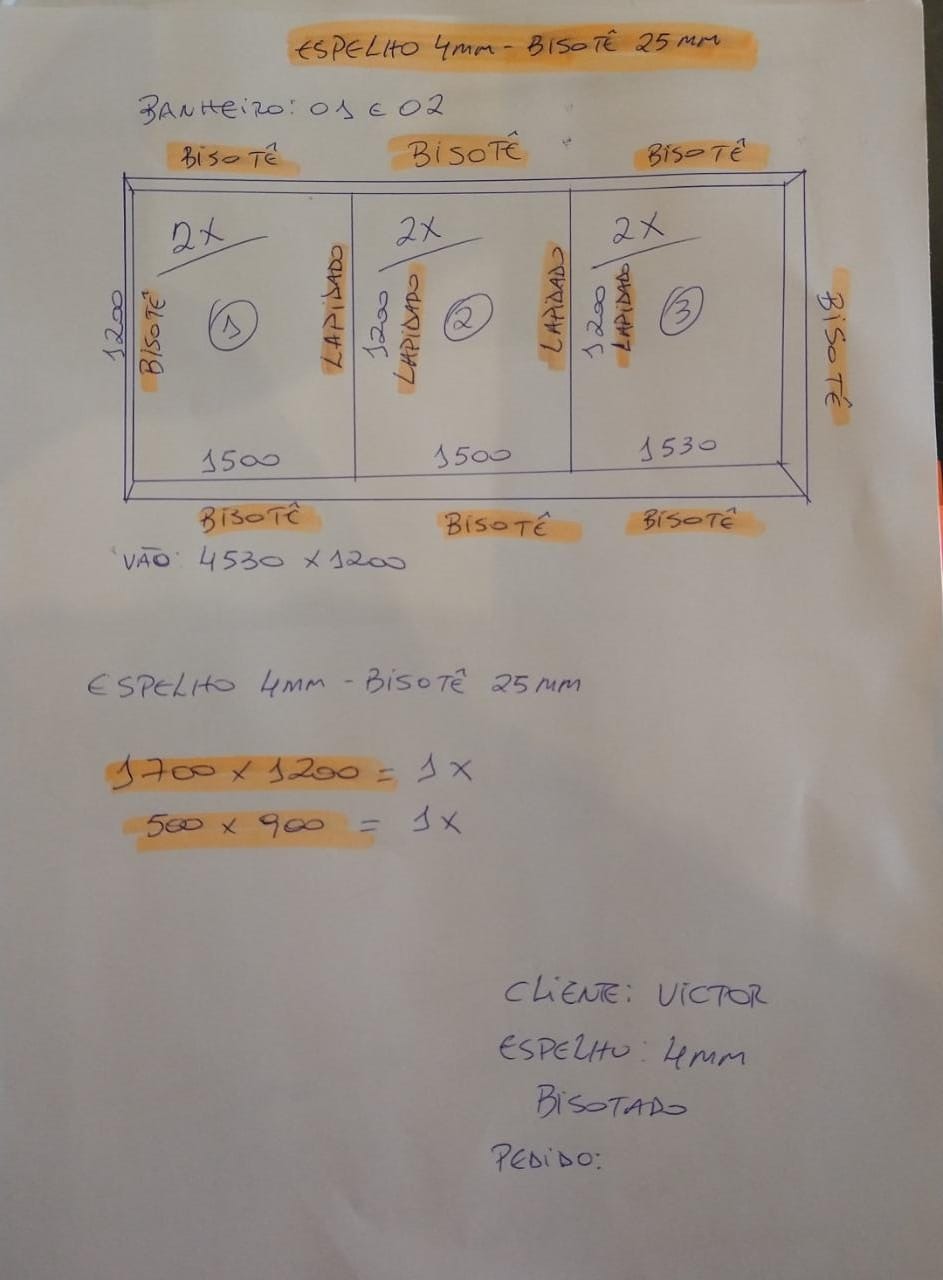 ESPELHO 4MM - BISOTÊ 25MM
BANHEIRO: 01 E 02
BISOTÊ BISOTÊ BISOTÊ
2X 2X 2X
1200 BISOTÊ 1 LAPIDADO 1200 LAPIDADO 2 LAPIDADO 1200 LAPIDADO 3 BISOTÊ
1500 1500 1530
BISOTÊ BISOTÊ BISOTÊ
VÃO: 4530 X 1200
ESPELHO 4MM - BISOTÊ 25MM
1700 X 1200 = 1X
500 X 900 = 1X
CLIENTE: VICTOR
ESPELHO: 4MM
BISOTADO
PEDIDO: